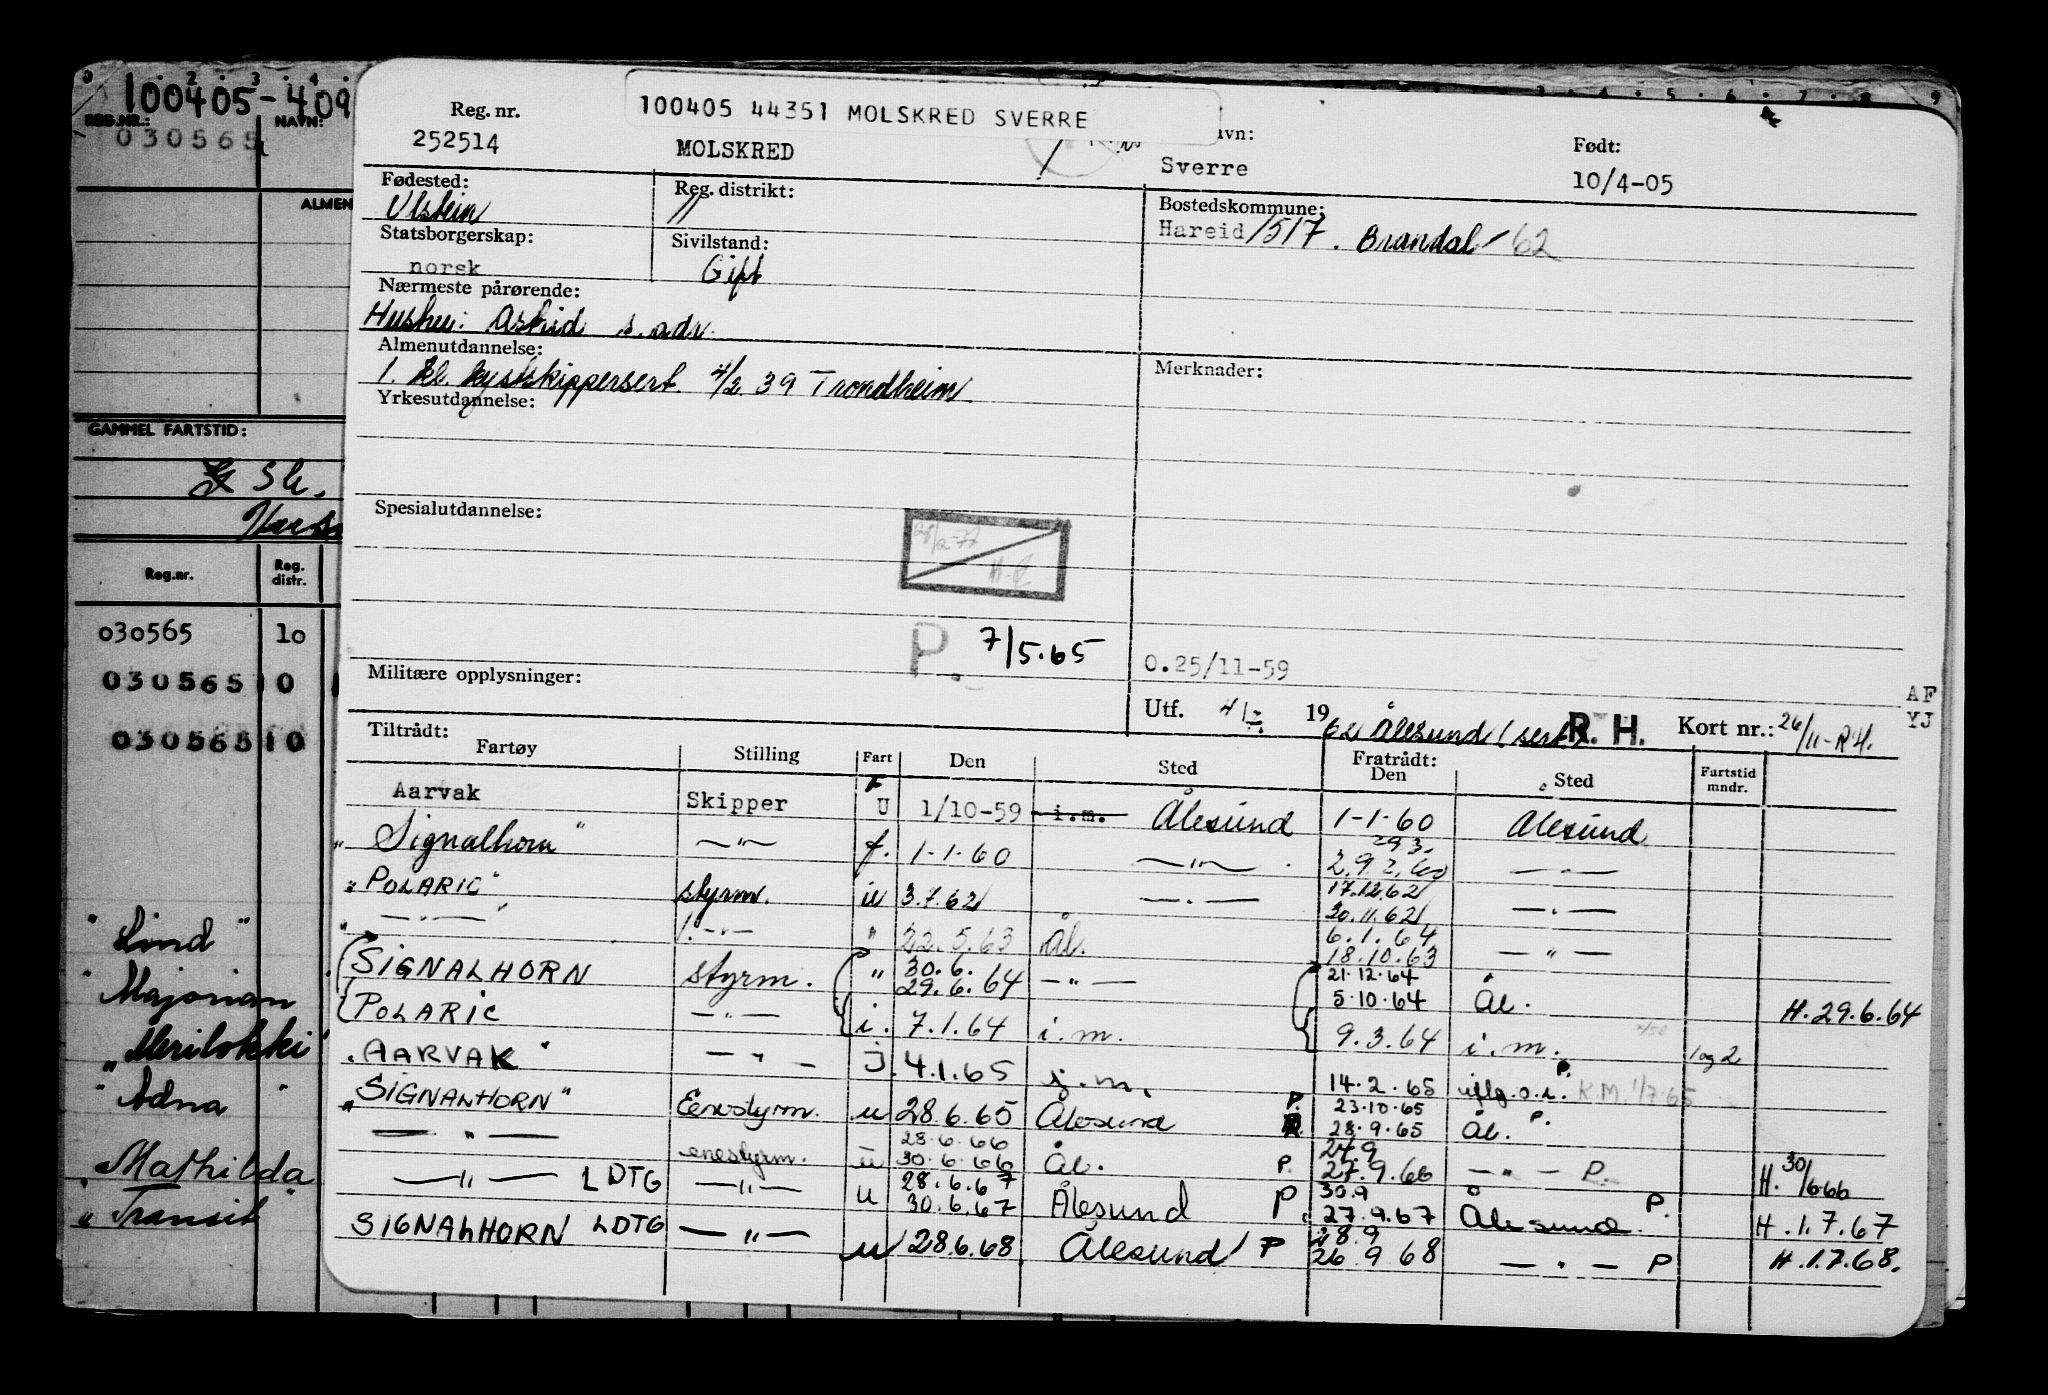 100405-409
REG.NR.: NAVN:
030565
ALMEN
GAMMEL FARTSTID:
Reg.nr. Reg. distr.
030565 10
030565 10
030565 10
" Lind "
" Majorian
" Merilokki "
" Adna "
" Mathilda
" Transit "
100405 44351 MOLSKRED SVERRE
Reg. nr. Født:
252514 MOLSKRED Sverre 10/4-05
Fødested: Reg. distrikt: Bostedskommune:
Ulstein " Hareid /517. Brandal - 62
Statsborgerskap: Sivilstand:
norsk Gift
Nærmeste pårørende:
Hustru: Astrid s. adr.
Almenutdannelse: Merknader:
1. kl. kystskippersert. 4/2 39 Trondheim
Yrkesutdannelse:
Spesialutdannelse:
P. 7/5.65
Militære opplysninger: O.25/11-59
AF
YJ
Utf. 19 62 Ålesund (sert.) R. H. Kort nr.: 26/11-R.H.
Tiltrådt: Fratrådt:
Fartøy Stilling Fart Den Sted Den Sted Fartstid mndr.
Aarvak Skipper U F 1/10-59 i.m. Ålesund 1-1-60 Ålesund
" Signalhorn " —"— f. 1-1-60 —"— 2.9.3.60 29.3. —"—
" POLARIC " styrm. u 3.7.62 —"— 17.12.62 —"—
30.11.62
" —"— " 1. —"— " 22.5.63 Ål. 6.1.64 —"—
18.10.63
SIGNALHORN styrm. " 30.6. 29.6.64 —"— 21.12.64
5.10.64 Ål. H. 29.6.64
POLARIC —"— i. 7.1.64 i.m. 9.3.64 i.m. 1 og 2
" AARVAK " —"— j. 4.1.65 j.m. 14.2.65 P. K.M. 1/7.65
" SIGNALHORN " Enestyrm. u 28.6.65 Ålesund P. 23.10.65
28.9.65 Ål. P.
—"— enestyrm. u 28.6.66 30.6.66 Ål. P. 24.9 27.9.66 —"— P. H. 30/6 66
—"— LDTG —"— u 28.6.67 30.6.67 Ålesund P. 30.9 27.9.67 Ålesund P. H. 1.7.67
SIGNALHORN LDTG —"— u 28.6.68 Ålesund P 28.9 26.9.68 —"— P H. 1.7.68.